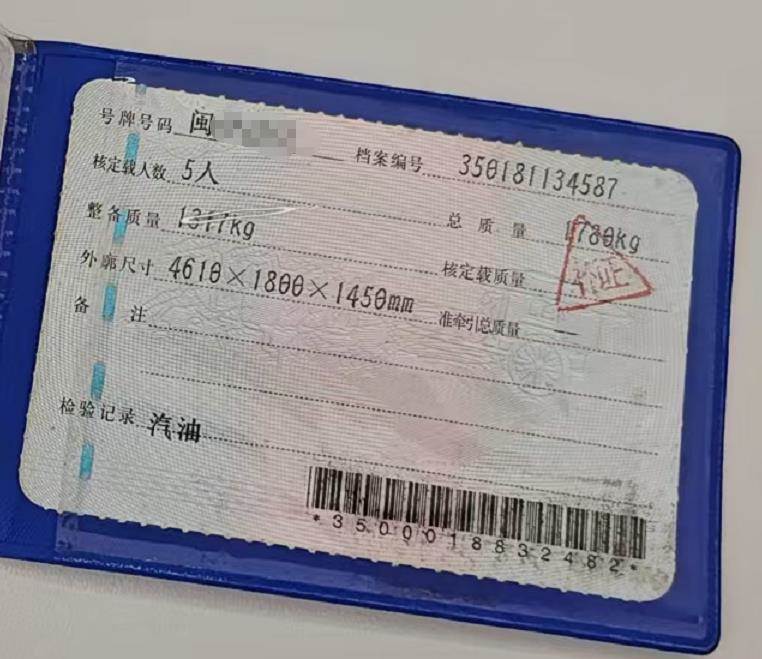 号牌号码 闽 档案编号 350181134587
核定载人数 5人
整备质量 1317kg 总质量 1780kg
外廓尺寸 4610×1800×1450mm 核定载质量
备注 准牵引总质量 —
检验记录 汽油
*3500018832482*